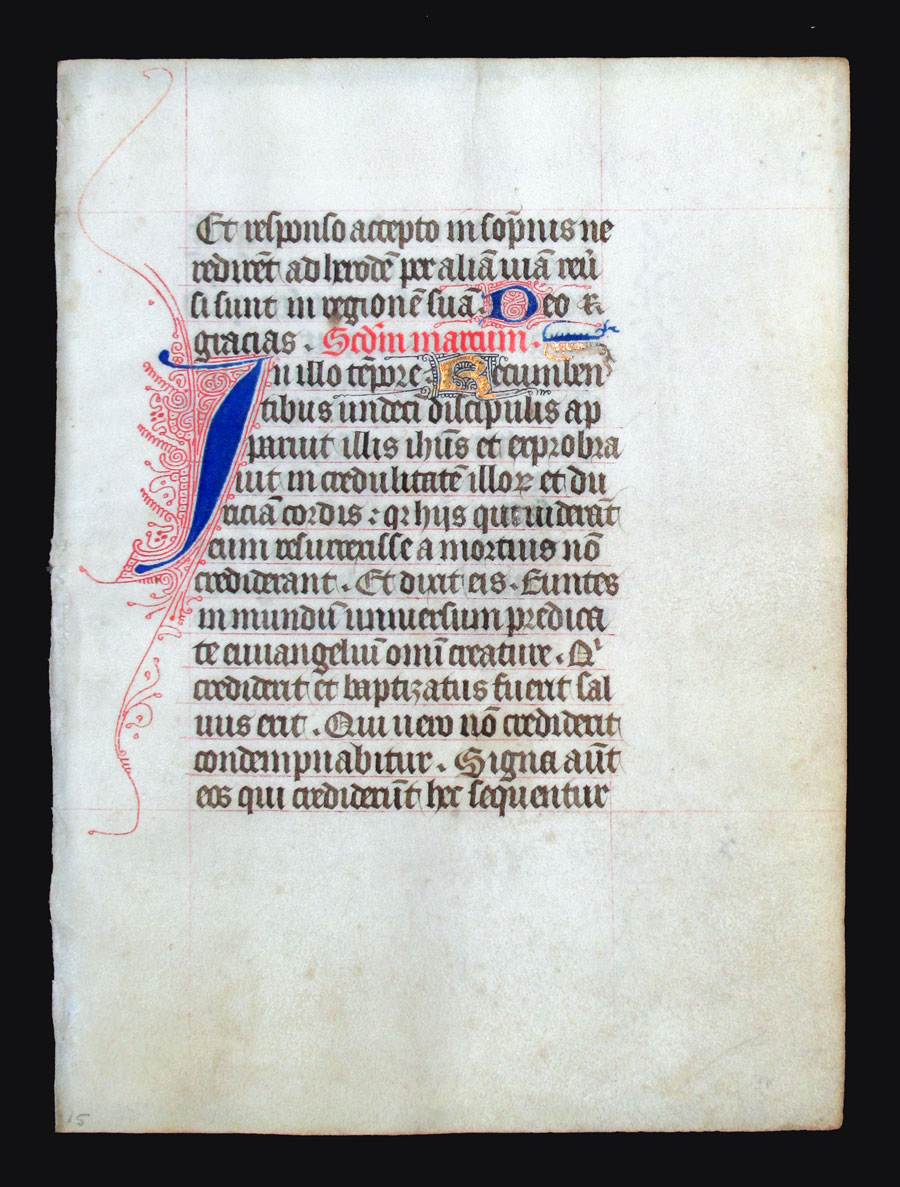 Et responso accepto in sop̄nis ne
redirēt ad herodē per aliā uiā reu̾
si sunt in regionē suā. Deo R
gracias. Scd̄m marcum.
In illo tēpore. Recumben
tibus undeci discipulis ap
paruit illis ihūs et exprobra
uit in credulitatē illoꝝ et du
riciā cordis: qr hijs qui uiderāt
eum resurrexisse a mortuis nō
crediderant. Et dixit eis. Euntes
in mundū uniuersum predica
te euuangeliū omī creature. Qⁱ
crediderit et baptizatus fuerit sal
uus erit. Qui uero nō crediderit
condempnabitur. Signa aūt
eos qui crediderūt hec sequentur
15